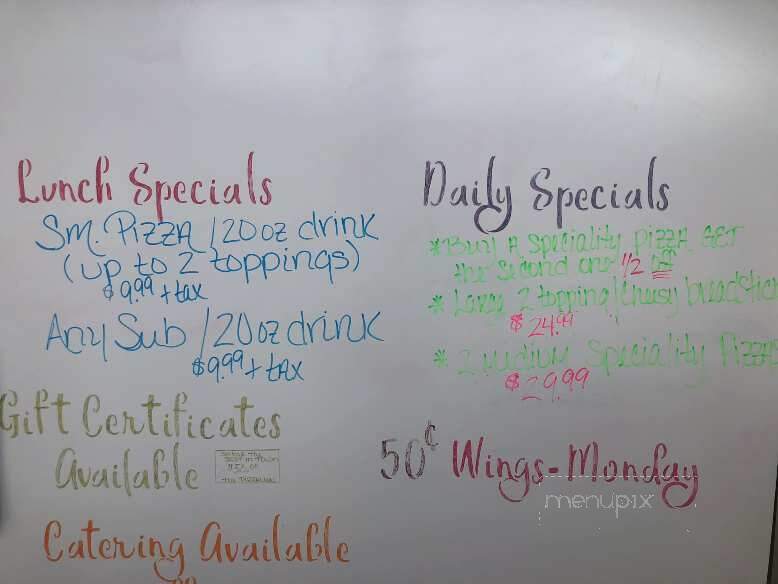 Lunch Specials
Sm. Pizza / 20 oz drink
(up to 2 toppings)
$9.99 + tax
Any Sub / 20 oz drink
$9.99 + tax
Gift Certificates
Available
Catering Available
Daily Specials
* Buy A Speciality Pizza GET
the Second one 1/2 off
* Large 2 topping / Cheesy breadstick
$24.99
* 2 Medium Speciality Pizzas
$29.99
50¢ Wings - Monday
menupix